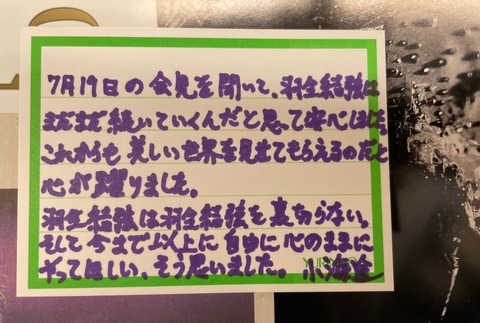 7月19日の会見を聞いて、羽生結弦は
まだまだ続いていくんだと思って安心した。
これからも美しい世界を見せてもらえるのだと
心が躍りました。
羽生結弦は羽生結弦を裏切らない。
そして今まで以上に自由に心のままに
やってほしい、そう思いました。